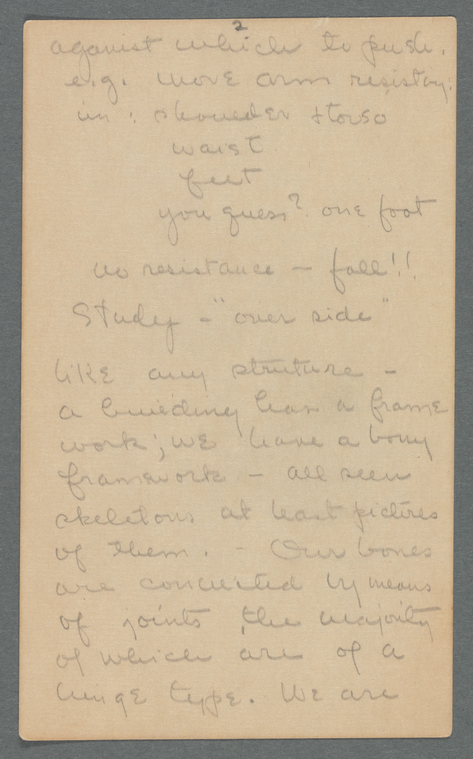 2
aganist which to push.
e.g. move arm resisting.
in: shoulder + torso
waist
feet
you guess? one foot
no resistance — fall!!
Study — "over side"
like any struture —
a building has a frame
work; we have a bony
framework — all seen
skeletons at least pictures
of them. — Our bones
are connected by means
of joints, the majority
of which are of a
hinge type. We are